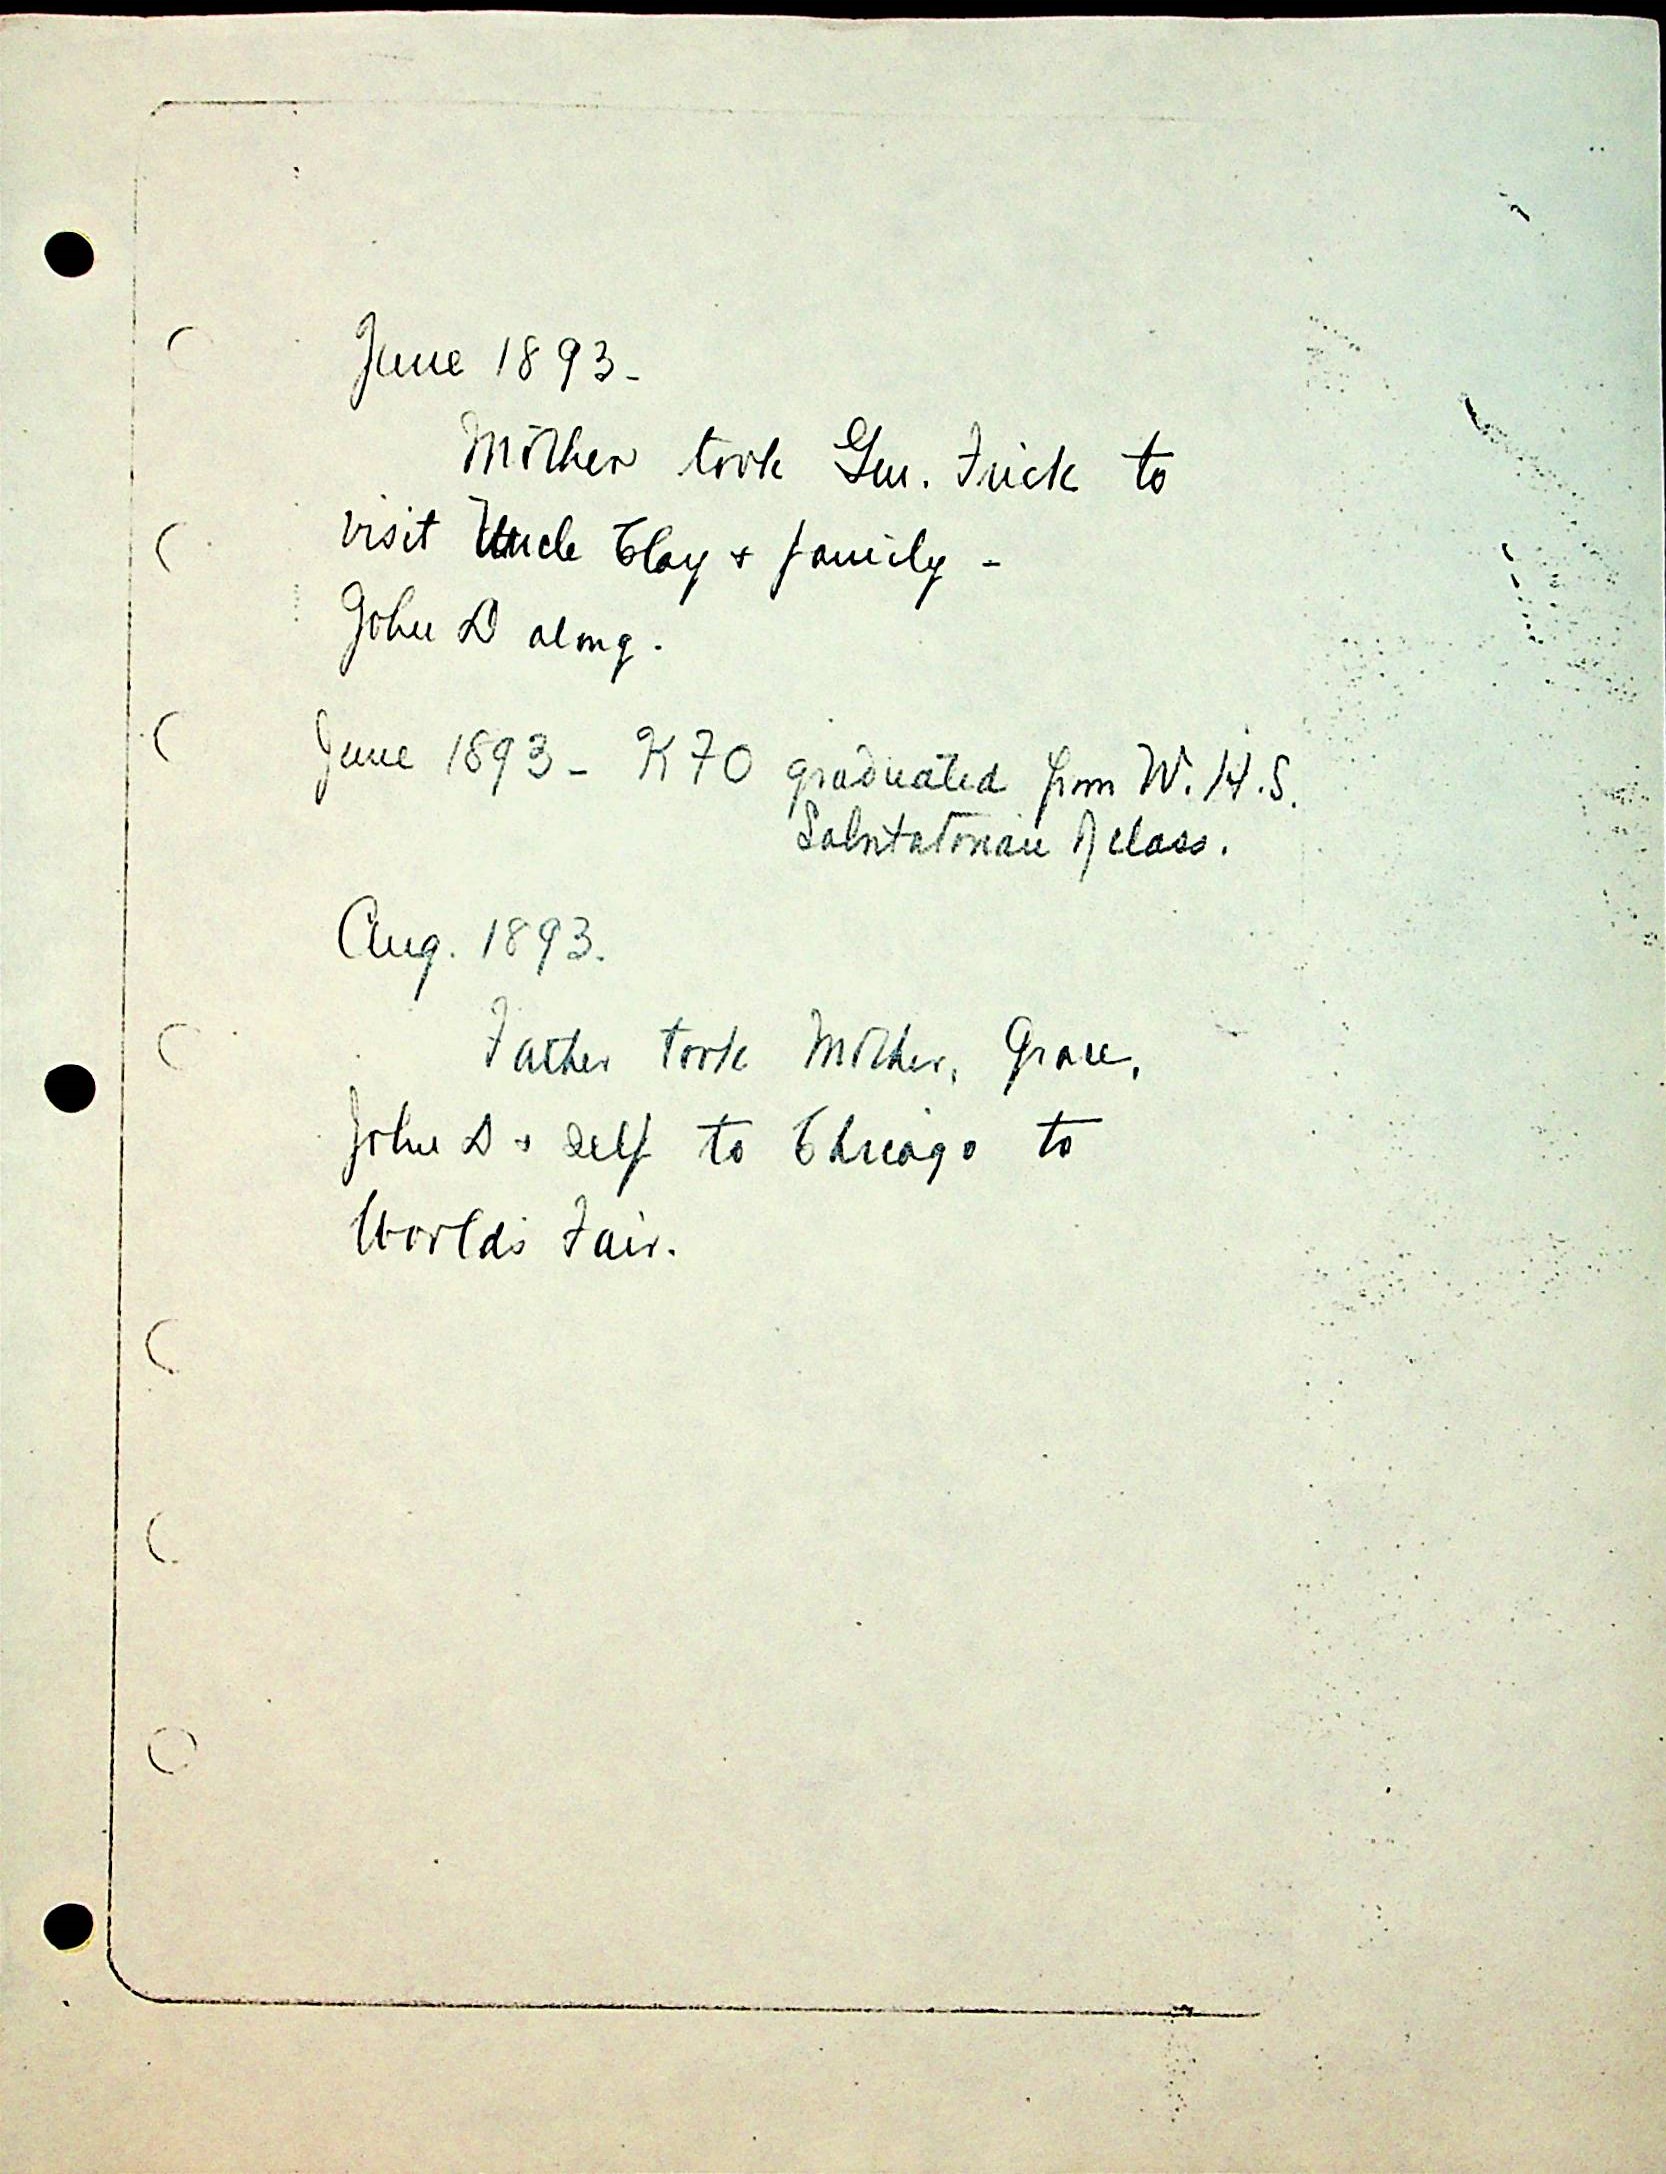 June 1893-
Mother took Gen. Frick to
visit Uncle Clay + family -
John D along.
June 1893 - KFO graduated from W.H.S.
Salutatorian of class.
Aug. 1893.
Father took Mother, Grace,
John D + self to Chicago to
World's Fair.